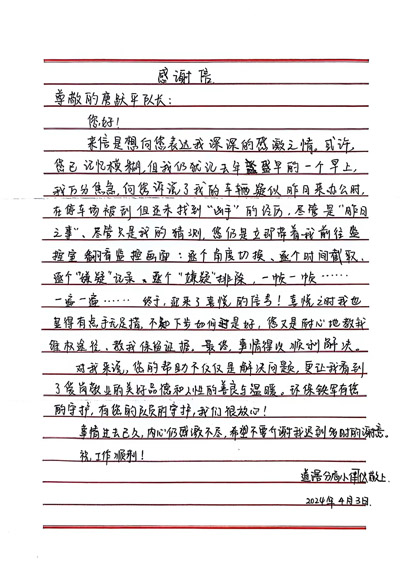 感谢信
尊敬的唐跃平队长：
您好！
来信是想向您表达我深深的感激之情。或许，
您已记忆模糊，但我仍然记去年盛早的一个早上，
我万分焦急，向您诉说了我的车辆疑似昨日来办公时，
在停车场被刮但并未找到“凶手”的经历，尽管是“昨日
之事”、尽管只是我的猜测，您仍是立即带着我前往监
控室翻看监控画面：逐个角度切换、逐个时间截取，
逐个“嫌疑”记录、逐个“嫌疑”排除，一帧一帧……
一遍一遍……终于，迎来了喜悦的信号！喜悦之时我也
显得有点手足无措，不知下步如何是好，您又是耐心地教我
维权途径、教我保留证据。最终，事情得以顺利解决。
对我来说，您的帮助不仅仅是解决问题，更让我看到
了爱岗敬业的美好品德和人性的善良与温暖。环保铁军有您
的守护，有您的负责的守护，我们很放心！
事情过去已久，内心仍感激不尽，希望不要介谢我迟到多时的谢意。
祝：工作顺利！
分局小
敬上
2024年4月3日